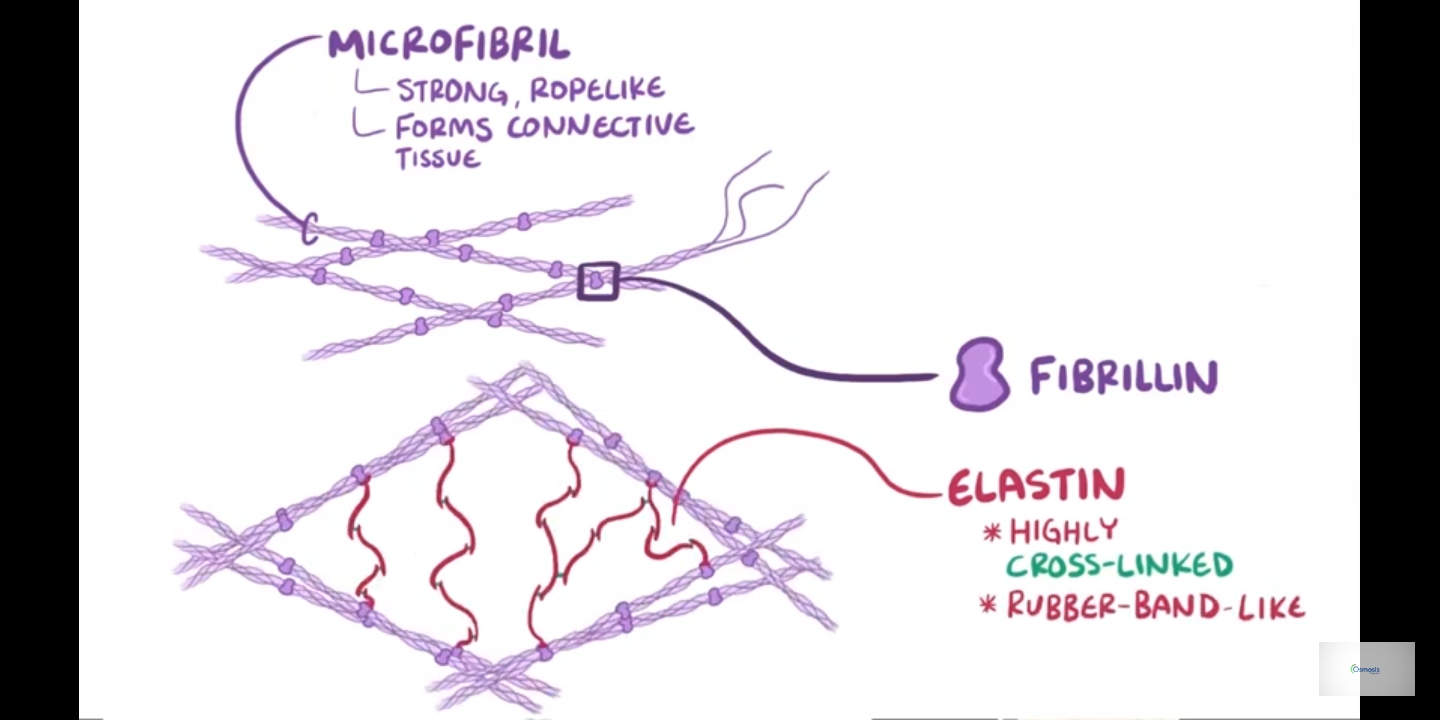 MICROFIBRIL
STRONG, ROPELIKE
FORMS CONNECTIVE
TISSUE
FIBRILLIN
ELASTIN
* HIGHLY
CROSS-LINKED
* RUBBER-BAND-LIKE
Osmosis